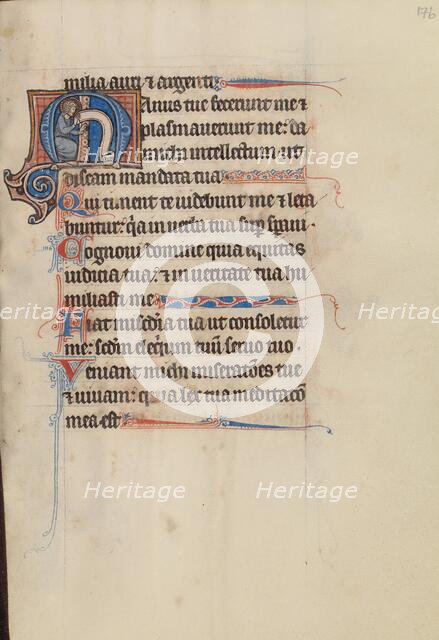 176
milia auri & argenti
Manus tue fecerunt me &
plasmauerunt me: da
michi intellectum ut
discam mandata tua
Qui timent te uidebunt me & leta
buntur: q̃a in uerba tua sup̃ speraui
Cognoui domine quia equitas
iudicia tua: & in ueritate tua hu
miliasti me
Fiat mis̃cdia tua ut consoletur
me: s̃cdm eloq̃um tuũ seruo tuo
Veniant michi miseratiões tue
& uiuam: quia lex tua meditacõ
mea est
Heritage Heritage
Heritage Heritage
Heritage Heritage